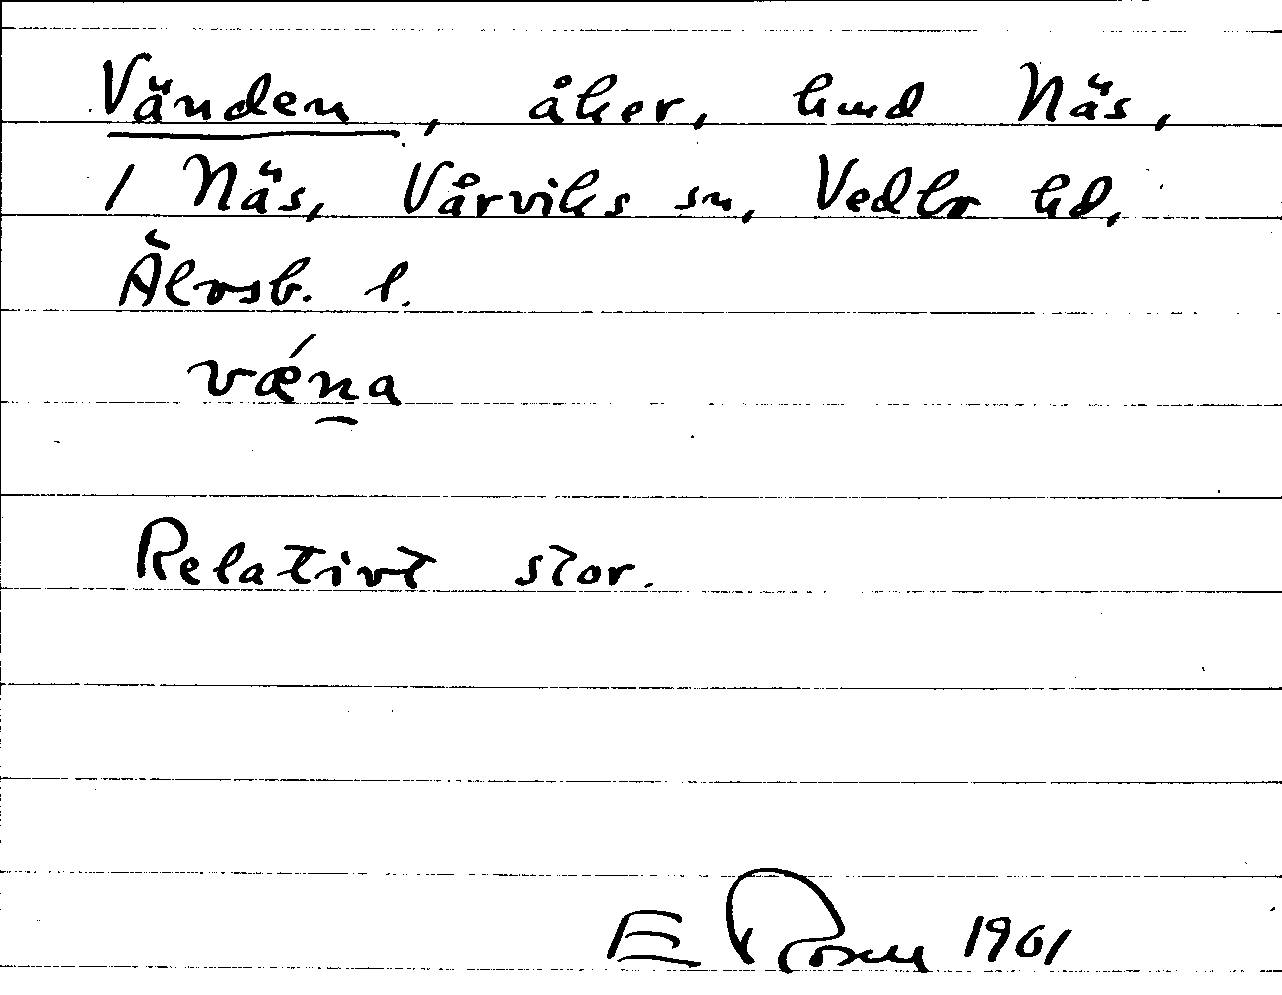 Vänden, åker, hmd Näs,
1 Näs, Vårviks sn, Vedbo hd,
Älvsb. l.
vǽna
Relativt stor.
E Rosén 1961